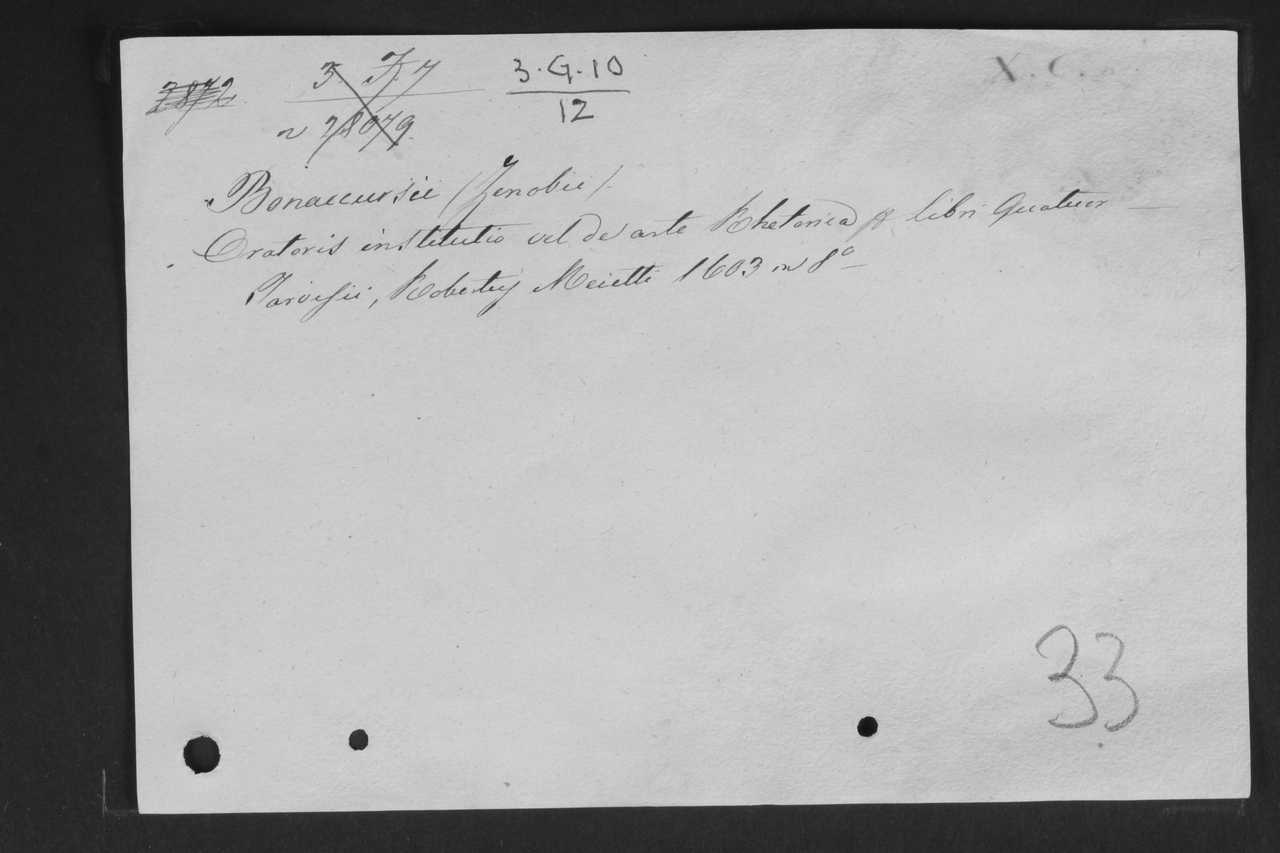 2872 3. J. 7 3.G.10 X.C.
n 28079. 12
Bonaccursii (Zenobii).
Oratoris institutio vel de arte Rhetorica libri quatuor
Tarvisii, Robertus Meietti 1603 in 8º
33